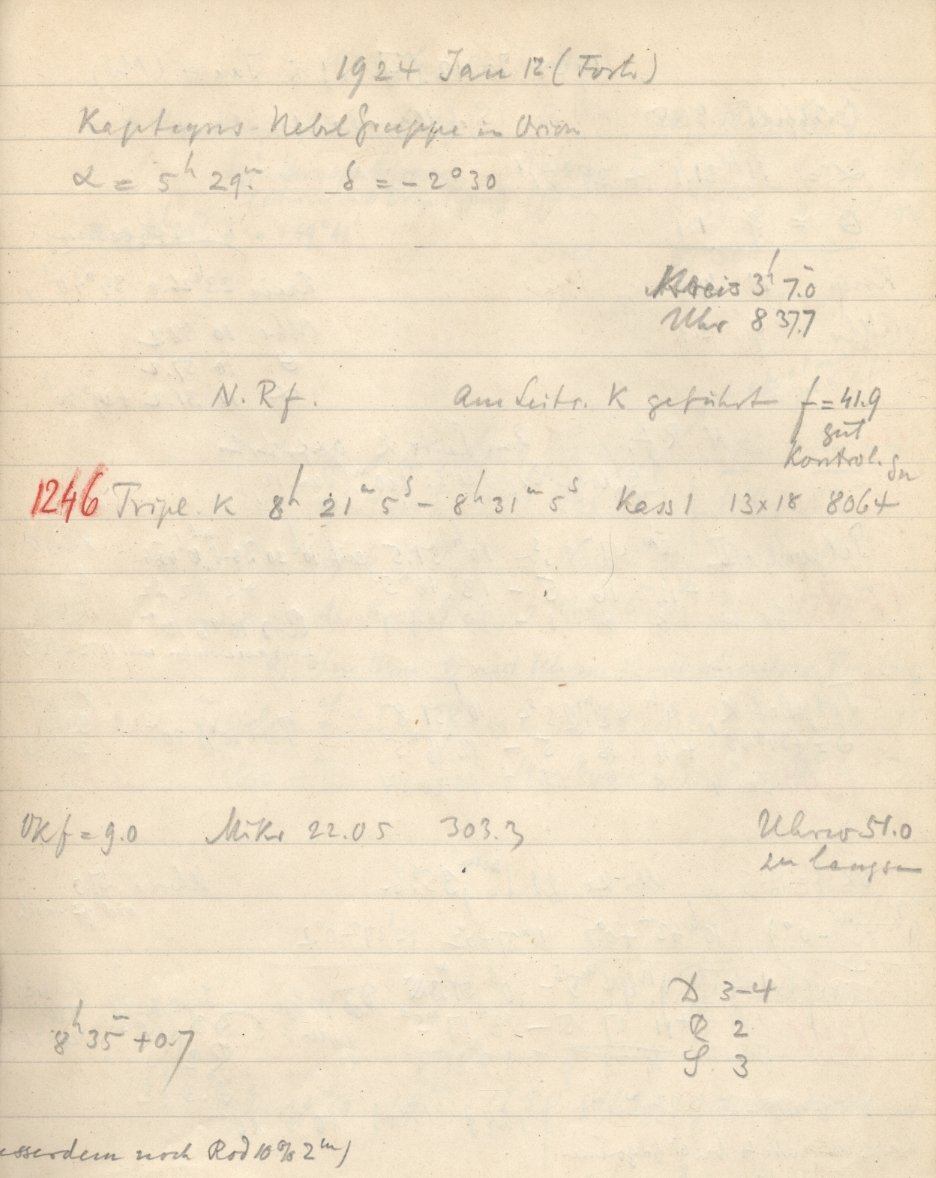 1924 Jan 12 (Forts)
Kapteyns Nebel Gruppe in Orion
α = 5h 29m. δ = -2°30
Kreis 3h 7.0m
Uhr 8 37.7
N. Rf. Am Leitr. K geführt f = 41.9
gut
Kontrol.
1246 Tripl. K 8h 21m 5s - 8h 31m 5s Kass 1 13x18 8064
OKf = 9.0 Mikr 22.05 303.3 Uhrw 51.0
zu langsam
D 3-4
R 2
8h 35m +0.7
S. 3
usserdem noch Rod 10% 2m)